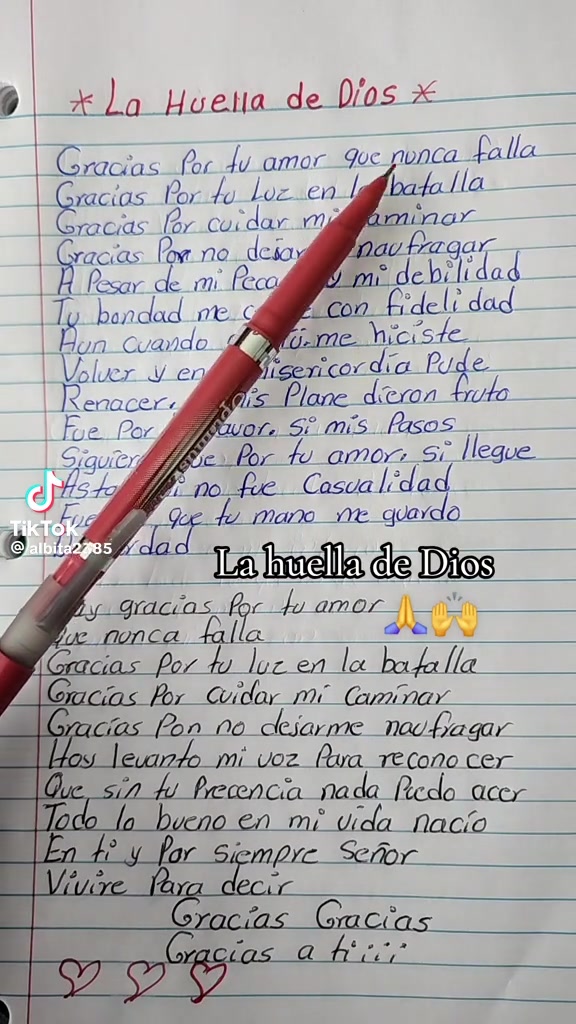 * La Huella de Dios *
Gracias Por tu amor que nunca falla
Gracias Por tu Luz en batalla
Gracias Por cuidar
Gracias Por no naufragar
A Pesar de mi mi debilidad
Tu bondad me con fidelidad
Aun cuando me hiciste
Volver y en Pude
Renacer. Plane dieron fruto
Fue Por Si mis Pasos
Por tu amor. Si llegue
no fue Casualidad
que tu mano me guardo
TikTok
@albita2285
La huella de Dios
gracias Por tu amor 🙏🙌
nunca falla
Gracias Por tu luz en la batalla
Gracias Por cuidar mi Caminar
Gracias Pon no dejarme naufragar
Hoy levanto mi voz Para reconocer
Que sin tu Precencia nada Puedo acer
Todo lo bueno en mi vida nacio
En ti y Por siempre Señor
Vivire Para decir
Gracias Gracias
Gracias a ti¡¡¡